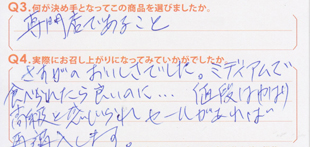 Q3. 何が決め手となってこの商品を選びましたか。
専門店であること
Q4. 実際にお召し上がりになってみていかがでしたか。
さすがのおいしさでした。ミディアムで
食べられたら良いのに… 値段はやはり
高級と感じられセールがあれば
再購入します。